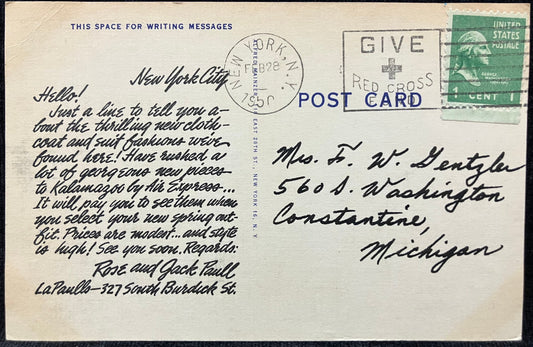 THIS SPACE FOR WRITING MESSAGES
New York City
Hello!
Just a line to tell you a-
bout the thrilling new cloth-
coat and suit fashions we've
found here! Have rushed a
lot of georgeous new pieces
to Kalamazoo by Air Express...
It will pay you to see them when
you select your new spring out-
fit. Prices are modest... and style
is high! See you soon. Regards:
Rose and Jack Paull
LaPaulls—327 South Burdick St.
ALFRED MAINZER, EAST 28TH ST., NEW YORK 16, N. Y.
NEW YORK, N.Y.
FEB 28
1950
GIVE
RED CROSS
FUND
UNITED
STATES
POSTAGE
1 CENT 1
POST CARD
Mrs. F. W. Gentzler
560 S. Washington
Constantine,
Michigan